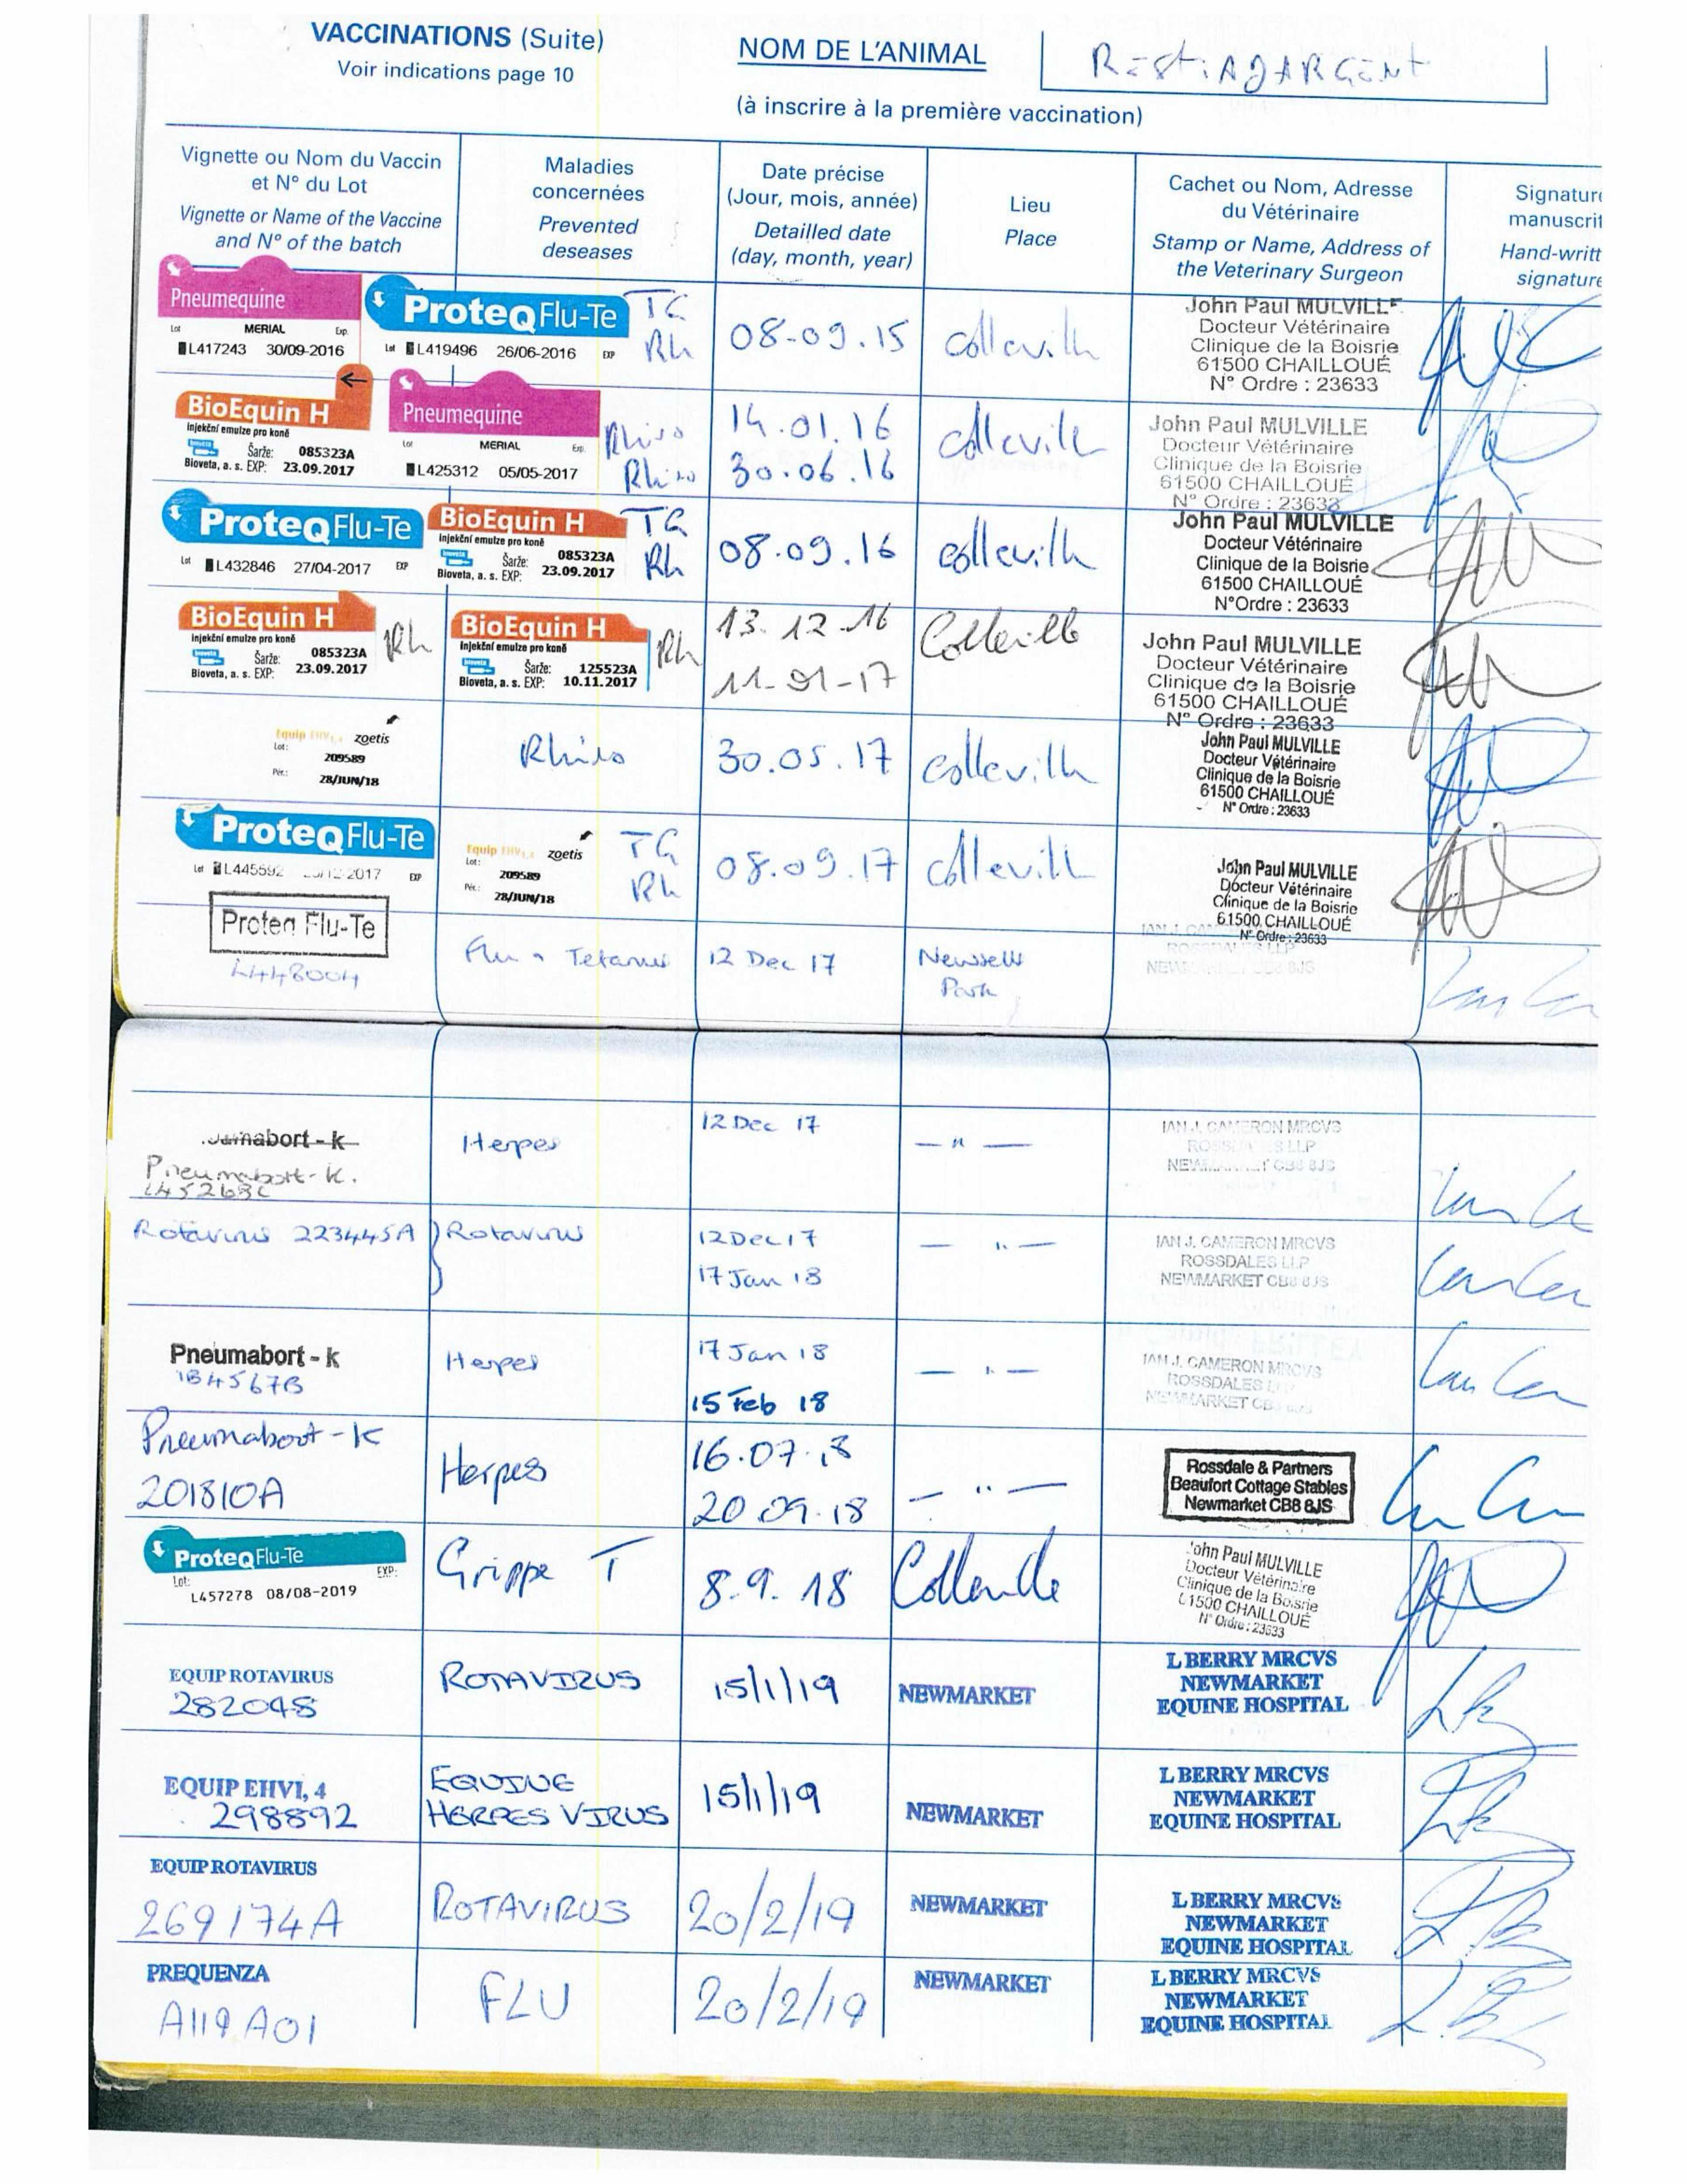 VACCINATIONS (Suite)
Voir indications page 10
NOM DE L'ANIMAL
RESTIADARGENT
(à inscrire à la première vaccination)
Vignette ou Nom du Vaccin
et N° du Lot
Vignette or Name of the Vaccine
and N° of the batch
Maladies
concernées
Prevented
deseases
Date précise
(Jour, mois, année)
Detailled date
(day, month, year)
Lieu
Place
Cachet ou Nom, Adresse
du Vétérinaire
Stamp or Name, Address of
the Veterinary Surgeon
Signature
manuscrit
Hand-writt
signature
Pneumequine
Lot MERIAL Exp.
L417243 30/09-2016
ProteqFlu-Te
Lot L419496 26/06-2016 EXP
TG
Rh
08-09.15
Colleville
John Paul MULVILLE
Docteur Vétérinaire
Clinique de la Boisrie
61500 CHAILLOUÉ
N° Ordre : 23633
BioEquin H
injekční emulze pro koně
Šarže: 085323A
Bioveta, a. s. EXP: 23.09.2017
Pneumequine
Lot MERIAL Exp.
L425312 05/05-2017
Rhino
Rhino
14.01.16
30.06.16
Colleville
John Paul MULVILLE
Docteur Vétérinaire
Clinique de la Boisrie
61500 CHAILLOUÉ
N° Ordre : 23633
ProteqFlu-Te
Lot L432846 27/04-2017 EXP
BioEquin H
injekční emulze pro koně
Šarže: 085323A
Bioveta, a. s. EXP: 23.09.2017
TG
Rh
08.09.16
Colleville
John Paul MULVILLE
Docteur Vétérinaire
Clinique de la Boisrie
61500 CHAILLOUÉ
N°Ordre : 23633
BioEquin H
injekční emulze pro koně
Šarže: 085323A
Bioveta, a. s. EXP: 23.09.2017
Rh
BioEquin H
injekční emulze pro koně
Šarže: 125523A
Bioveta, a. s. EXP: 10.11.2017
Rh
13.12.16
11-01-17
Colleville
John Paul MULVILLE
Docteur Vétérinaire
Clinique de la Boisrie
61500 CHAILLOUÉ
N° Ordre : 23633
Equip EHV1,4 zoetis
Lot:
209589
Pér.: 28/JUN/18
Rhino
30.05.17
Colleville
John Paul MULVILLE
Docteur Vétérinaire
Clinique de la Boisrie
61500 CHAILLOUÉ
N° Ordre : 23633
ProteqFlu-Te
Lot L445592 2017 EXP
Equip EHV1,4 zoetis
Lot:
209589
Pér.: 28/JUN/18
TG
Rh
08.09.17
Colleville
John Paul MULVILLE
Docteur Vétérinaire
Clinique de la Boisrie
61500 CHAILLOUÉ
N° Ordre : 23633
Proteq Flu-Te
L448004
Flu + Tetanus
12 Dec 17
Newsells
Park
Pneumabort-k
Pneumabort-K.
Herpes
12 Dec 17
— " —
IAN J. CAMERON MRCVS
ROSSDALES LLP
NEWMARKET CB8 8JS
Rotavirus 223445A
Rotavirus
12 Dec 17
17 Jan 18
— " —
IAN J. CAMERON MRCVS
ROSSDALES LLP
NEWMARKET CB8 8JS
Pneumabort - k
1B4567B
Herpes
17 Jan 18
15 Feb 18
— " —
IAN J. CAMERON MRCVS
ROSSDALES LLP
NEWMARKET CB8 8JS
Pneumabort-K
201810A
Herpes
16.07.18
20.09.18
— " —
Rossdale & Partners
Beaufort Cottage Stables
Newmarket CB8 8JS
ProteqFlu-Te
Lot: EXP:
L457278 08/08-2019
Grippe T
8.9.18
Colleville
John Paul MULVILLE
Docteur Vétérinaire
Clinique de la Boisrie
61500 CHAILLOUÉ
N° Ordre : 23633
EQUIP ROTAVIRUS
282048
ROTAVIRUS
15/1/19
NEWMARKET
L BERRY MRCVS
NEWMARKET
EQUINE HOSPITAL
EQUIP EHVI, 4
298892
EQUINE
HERPES VIRUS
15/1/19
NEWMARKET
L BERRY MRCVS
NEWMARKET
EQUINE HOSPITAL
EQUIP ROTAVIRUS
269174A
ROTAVIRUS
20/2/19
NEWMARKET
L BERRY MRCVS
NEWMARKET
EQUINE HOSPITAL
PREQUENZA
A119A01
FLU
20/2/19
NEWMARKET
L BERRY MRCVS
NEWMARKET
EQUINE HOSPITAL